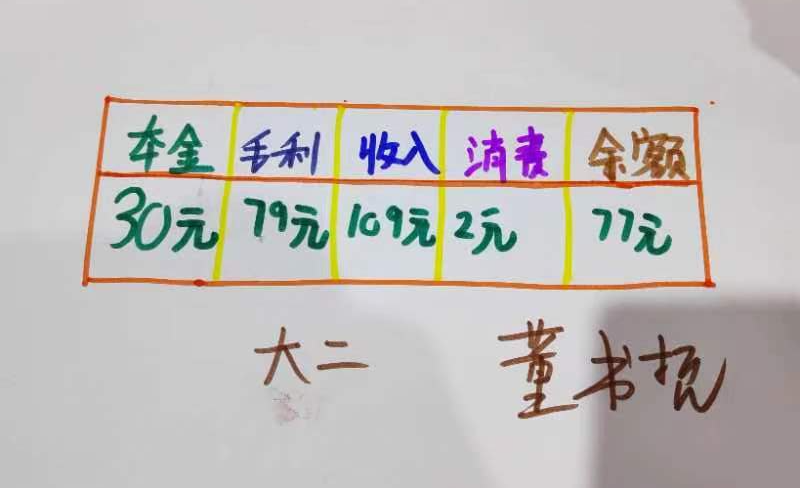 本金 毛利 收入 消费 余额
30元 79元 109元 2元 77元
大二 董书抗